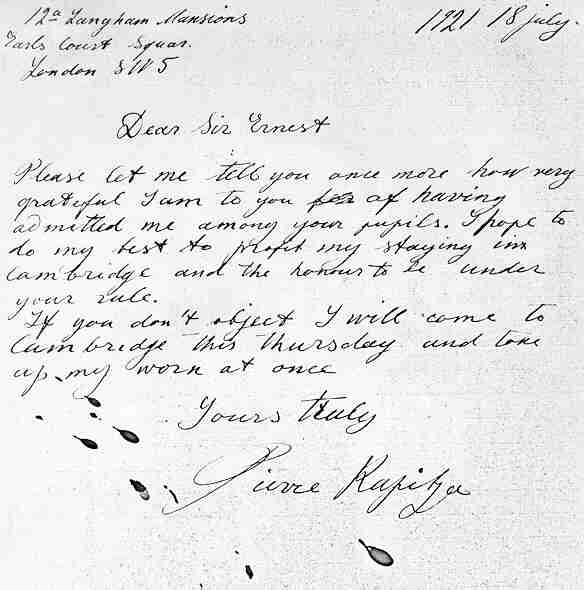 12a Langham Mansions
1921 18 july.
Earls Court Squar.
London SW5
Dear Sir Ernest
Please let me tell you once more how very
grateful I am to you for of having
admitted me among your pupils. I hope to
do my best to profit my staying in
Cambridge and the honour to be under
your rule.
If you don't object I will come to
Cambridge this thursday and take
up my work at once
Yours truly
Pierre Kapitza